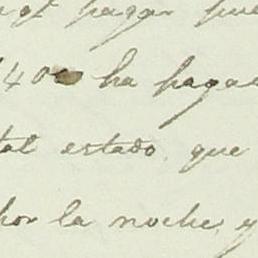 pagar pue
140 ha paga
tal estado, que
por la noche, y